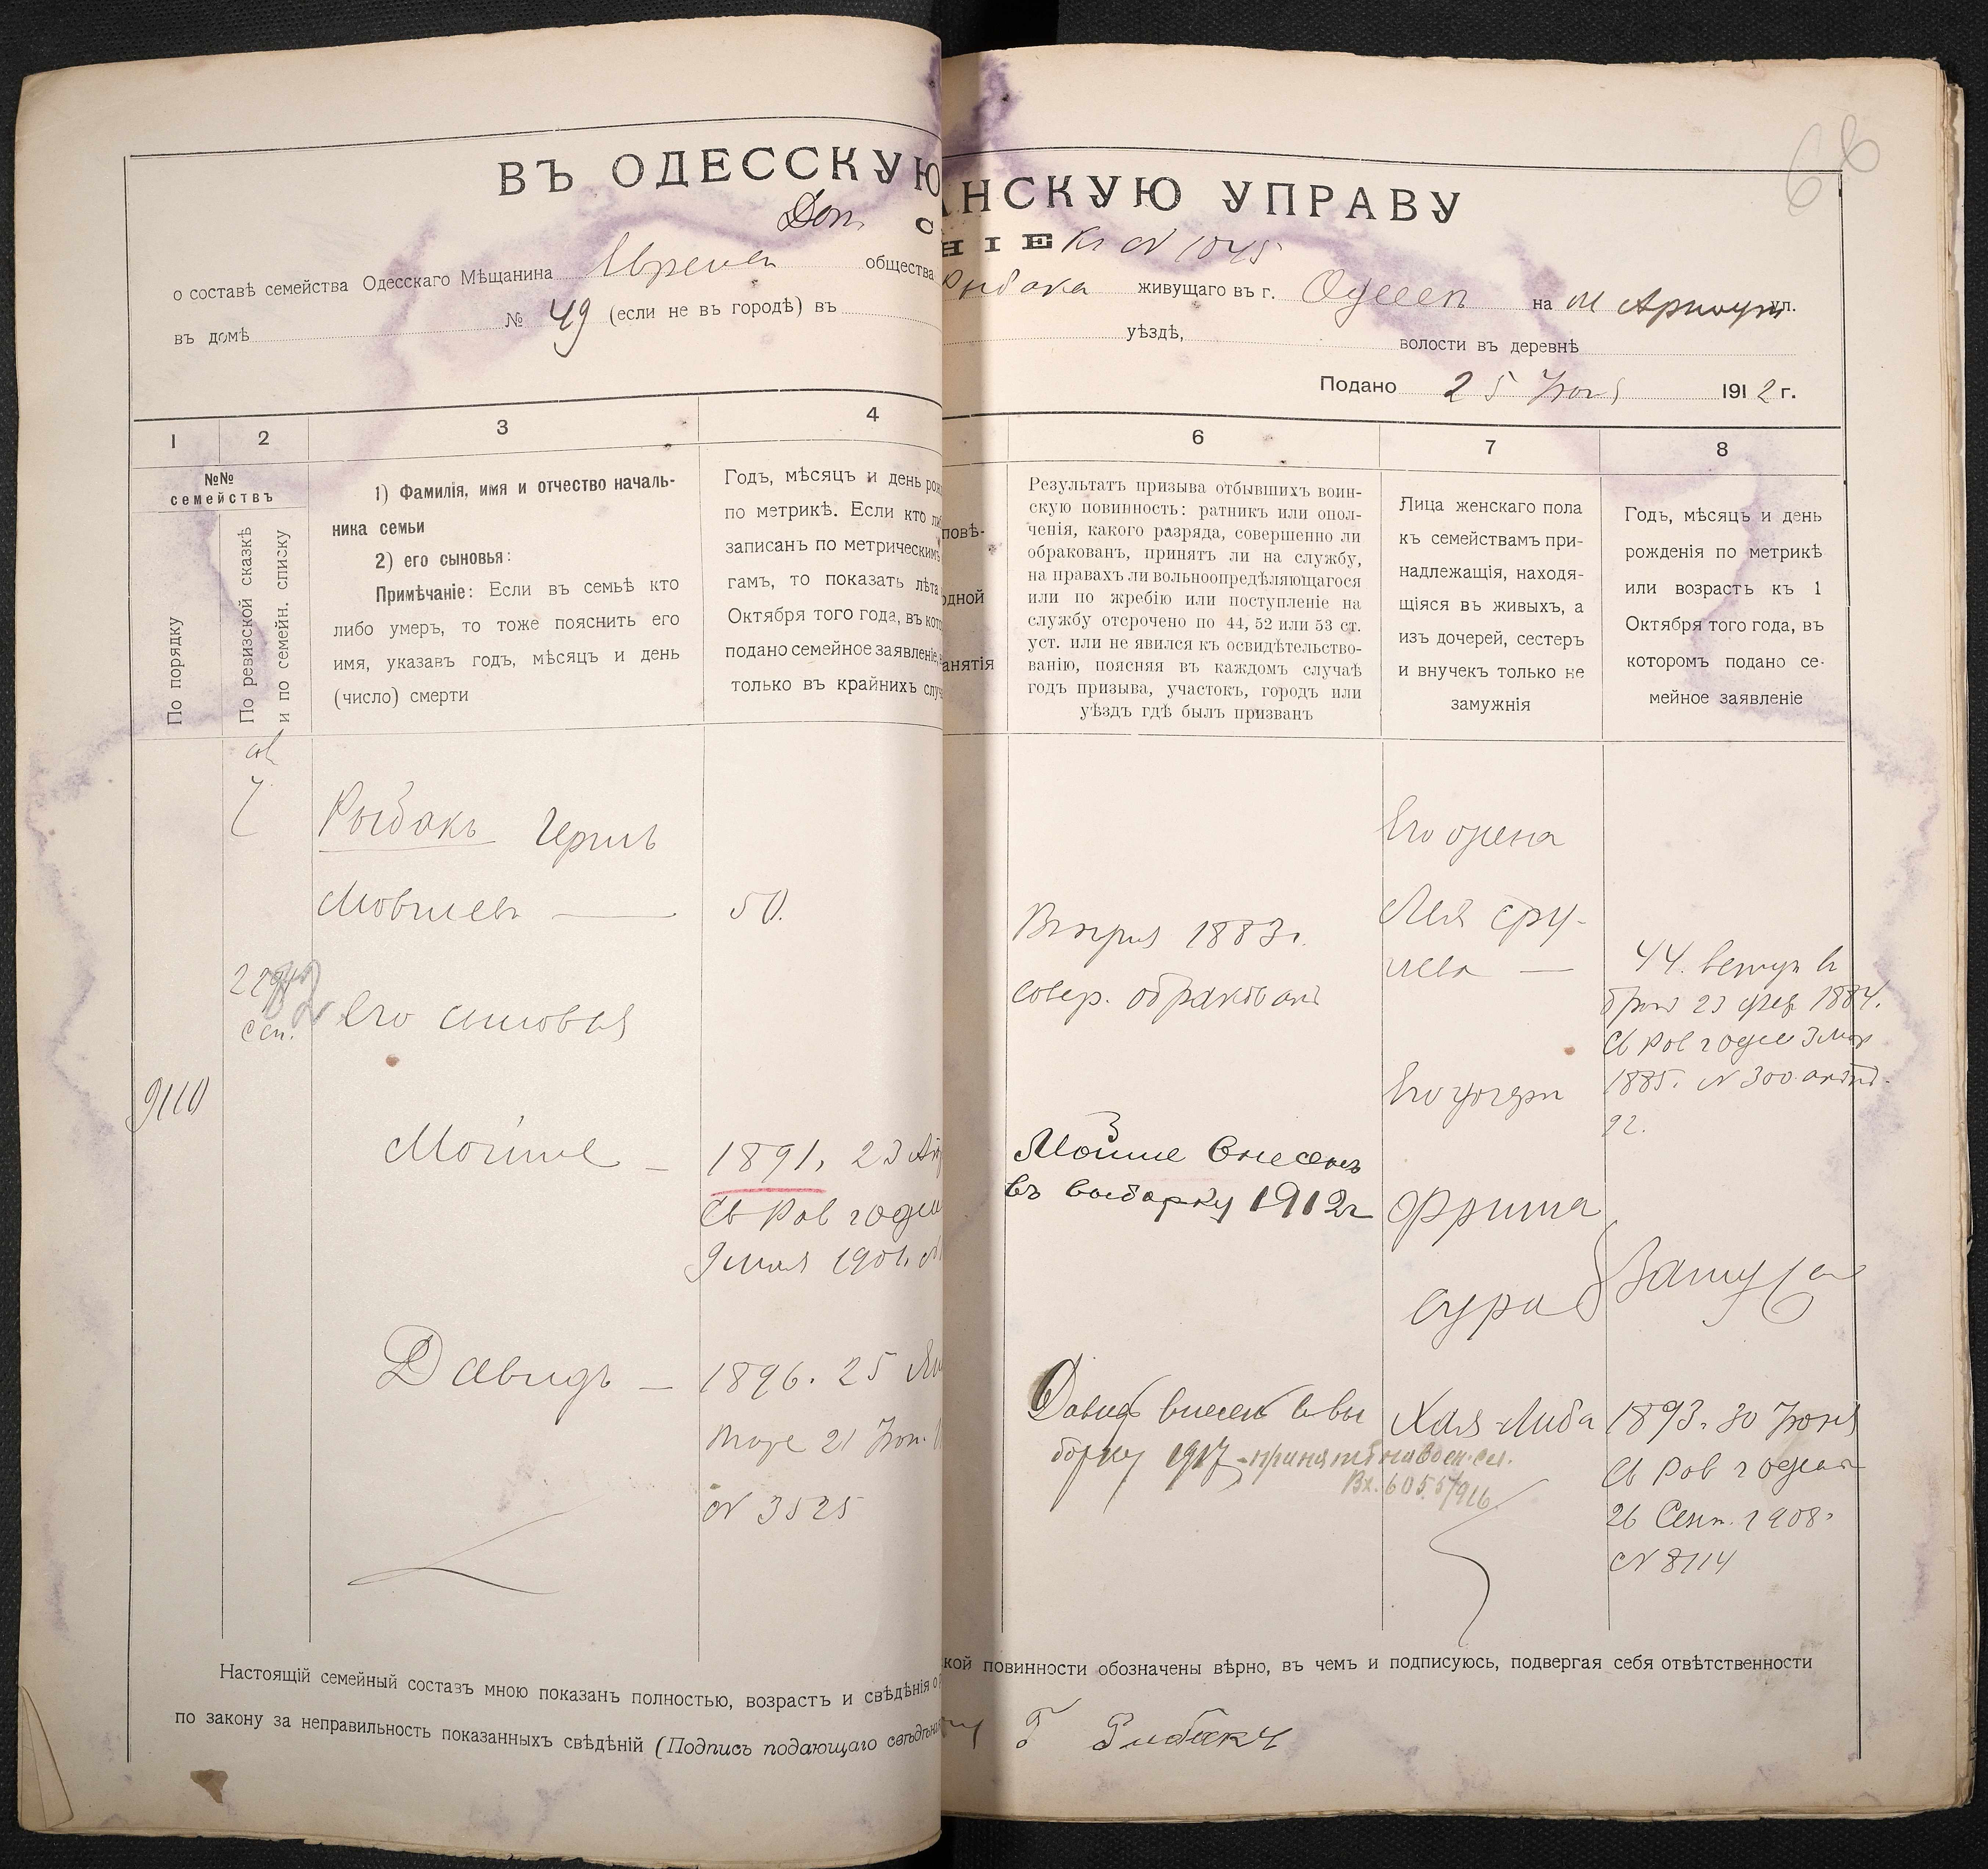 68
ВЪ ОДЕССКУЮ
АНСКУЮ УПРАВУ
Доп.
НІЕ К № 1045
о составѣ семейства Одесскаго Мѣщанина Евреен общества
Рыбака живущаго въ г. Одессѣ на М Арнаут ул.
въ домѣ № 49 (если не въ городѣ) въ
уѣздѣ, волости въ деревнѣ
Подано 25 Іюня 1912 г.
1 2 3 4
6 7 8
№№
семействъ
По порядку
По ревизской сказкѣ
и по семейн. списку
1) Фамилія, имя и отчество началь-
ника семьи
2) его сыновья:
Примѣчаніе: Если въ семьѣ кто
либо умеръ, то тоже пояснить его
имя, указавъ годъ, мѣсяцъ и день
(число) смерти
Годъ, мѣсяцъ и день рож
по метрикѣ. Если кто ли
записанъ по метрическимъ
гамъ, то показать лѣта
Октября того года, въ кот
подано семейное заявленіе,
только въ крайнихъ случ
повѣ-
одной
анятія
Результатъ призыва отбывшихъ воин-
скую повинность: ратникъ или опол-
ченія, какого разряда, совершенно ли
обракованъ, принятъ ли на службу,
на правахъ ли вольноопредѣляющагося
или по жребію или поступленіе на
службу отсрочено по 44, 52 или 53 ст.
уст. или не явился къ освидѣтельство-
ванію, поясняя въ каждомъ случаѣ
годъ призыва, участокъ, городъ или
уѣздъ гдѣ былъ призванъ
Лица женскаго пола
къ семействамъ при-
надлежащія, находя-
щіяся въ живыхъ, а
изъ дочерей, сестеръ
и внучекъ только не
замужнія
Годъ, мѣсяцъ и день
рожденія по метрикѣ
или возрастъ къ 1
Октября того года, въ
которомъ подано се-
мейное заявленіе
Рыбакъ Гершъ
Мовшевъ
50.
1883г.
совер. обракованъ
Его жена
Лея Сру-
лева
44. вступ въ
бракъ 23 фев 1884.
Св Рав Одессы 3 мар
1885. № 300
92.
Его сыновья
9110
Мойше
1891, 23 Ап
Св Рав Одессы
9 мая 1901. №
Мойше внесенъ
въ выборку 1912г
Его дочери
Фрима
Сура
Замужем
Давидъ
1896. 25 Ян
тоже 21 Іюн.
№ 3525
Давидъ внесенъ въ вы
борку 1917 - принятъ на воен. сл.
Вх. 6055/916
Хая-Либа
1893. 30 Іюня
Св Рав Одессы
26 Сент. 1908.
№ 8114
Настоящій семейный составъ мною показанъ полностью, возрастъ и свѣдѣнія о
кой повинности обозначены вѣрно, въ чемъ и подписуюсь, подвергая себя отвѣтственности
по закону за неправильность показанныхъ свѣдѣній (Подпись подающаго свѣдѣнія
Г Рибакъ